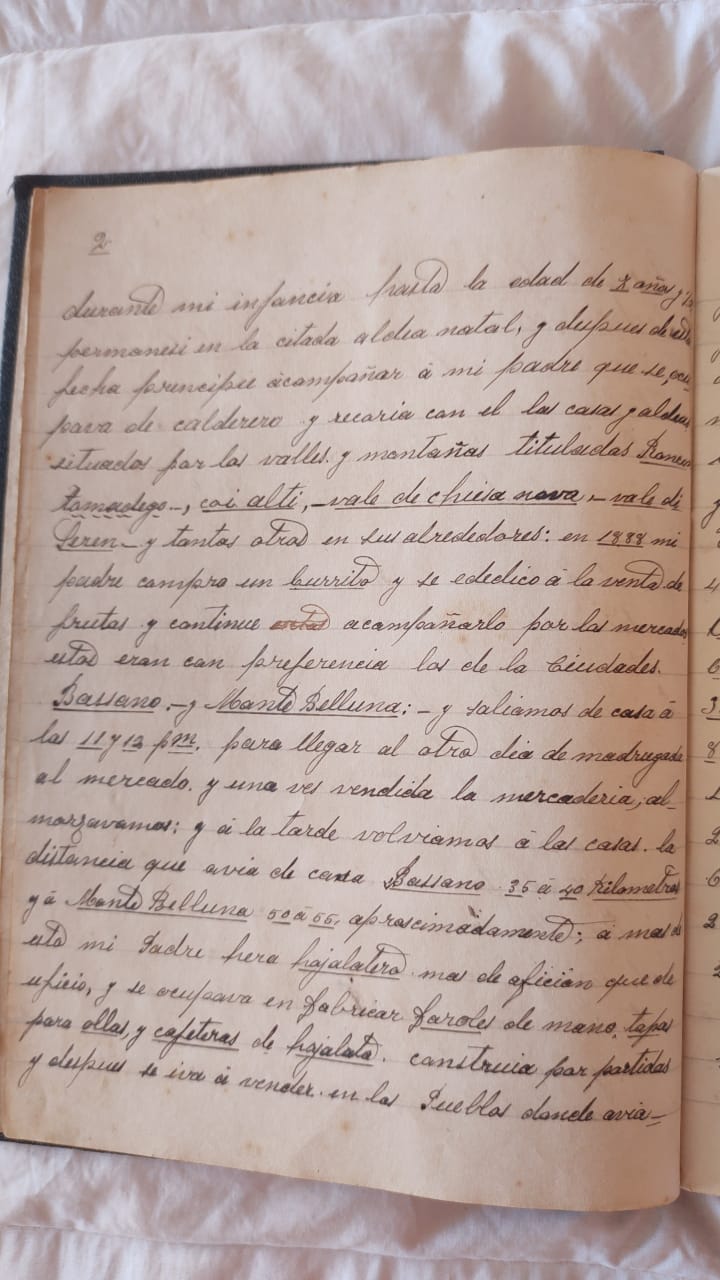 2
durante mi infancia hasta la edad de 8 años y
permanesi en la citada aldea natal, y despues de esta
fecha principie ácompañar á mi padre que se, ocu
pava de calderero y recoria con el las casas y aldeas
situados por los valles. y montañas tituladas Roncon
tomadego-, coi alti, - vale de chiesa nova, - vale di
Seren - y tantas otras en sus alrededores: en 1888 mi
padre compro un burrito y se ededico á la venta de
frutas y continue acompañarlo por los mercados
estos eran con preferencia los de la Ciudades.
Bassano. - y Monte Belluna: - y saliamos de casa á
las 11 y 12 pm. para llegar al otro dia de madrugada
al mercado. y una ves vendida la mercaderia, al-
morzavamos: y á la tarde volviamos á las casas. la
distancia que avia de casa Bassano 35 á 40 Kilometros
y á Monte Belluna 50 á 55, aproscimadamente; á mas de
esto mi Padre hera hojalatero mas de aficion que de
oficio, y se ocupava en fabricar faroles de mano, tapas
para ollas, y cafeteras de hojalata. construia por partidas
y despues se iva á vender. en los Pueblos donde avia-